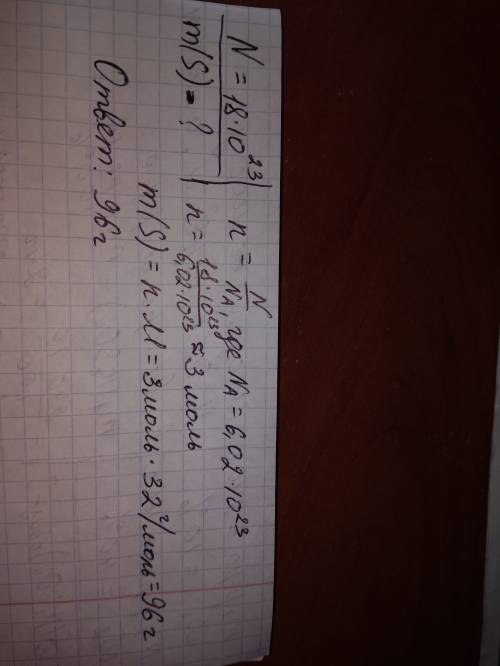 N = 18·10²³ | n = N/Nₐ, где Nₐ = 6,02·10²³
m(S) - ? | n = 18·10²³/6,02·10²³ ≈ 3 моль
m(S) = n·M = 3 моль · 32 г/моль = 96 г
Ответ: 96 г